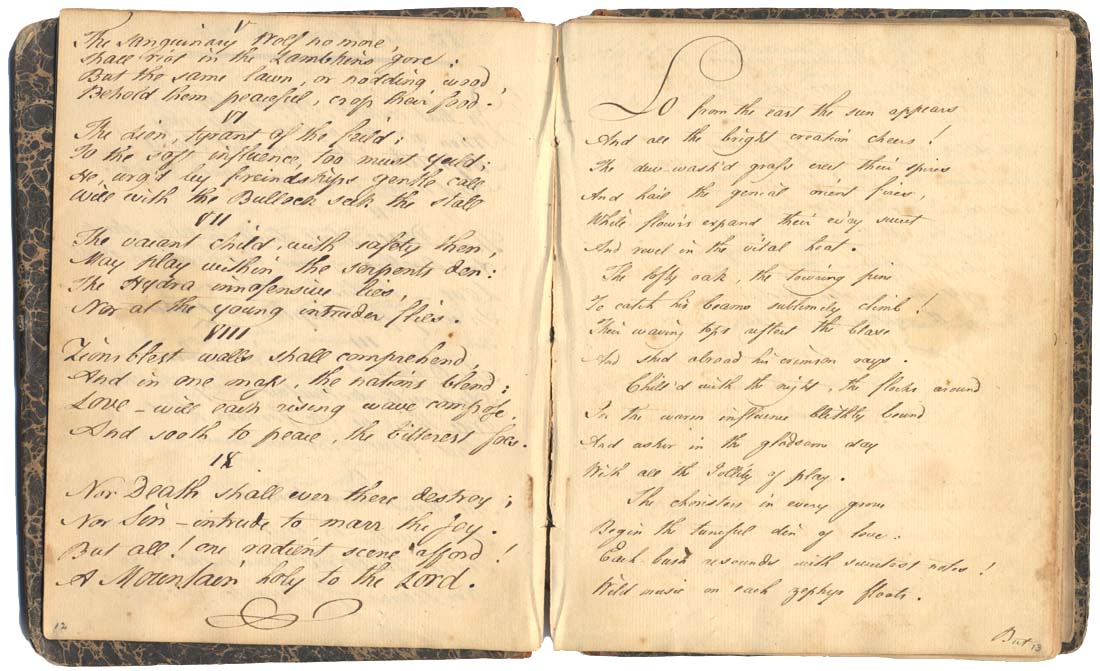 V
The Sanguinary Wolf no more,
Shall riot in the Lambkins gore:
But the same lawn, or nodding wood,
Behold them peaceful, crop their food.
VI
The Lion, tyrant of the feild;
To the soft influence, too must yeild;
He, urg'd by freindships gentle call,
Will with the Bullock seek the stall
VII
The vacant child, with safety then,
May play within the serpents den:
The Hydra innofensive lies,
Nor at the young intruder flies.
VIII
Zions blest walls shall comprehend,
And in one mass, the nations blend:
Love – will each rising wave compose,
And sooth to peace, the bitterest foes.
IX
Nor Death shall ever there destroy;
Nor Sin – intrude to marr the joy.
But all! one radient scene afford!
A Mountain holy to the Lord.
12
Lo from the east the sun appears
And all the bright creation cheers!
The dew-wash'd grass erect their spires
And hail the genial orient fires,
While flow'rs expand their ev'ry sweet
And revel in the vital heat.
The lofty oak, the towering pine
To catch his beams sublimely climb!
Their waving tops reflect the blaze
And shed abroad his crimson rays.
Chill'd with the night, the flocks around
In the warm influence blithly bound
And usher in the gladsom day
With all the Jollity of play.
The choristers in every grove
Begin the tuneful din of love:
Each bush resounds with sweetest notes!
Wild music on each zephyr floats.
But 13